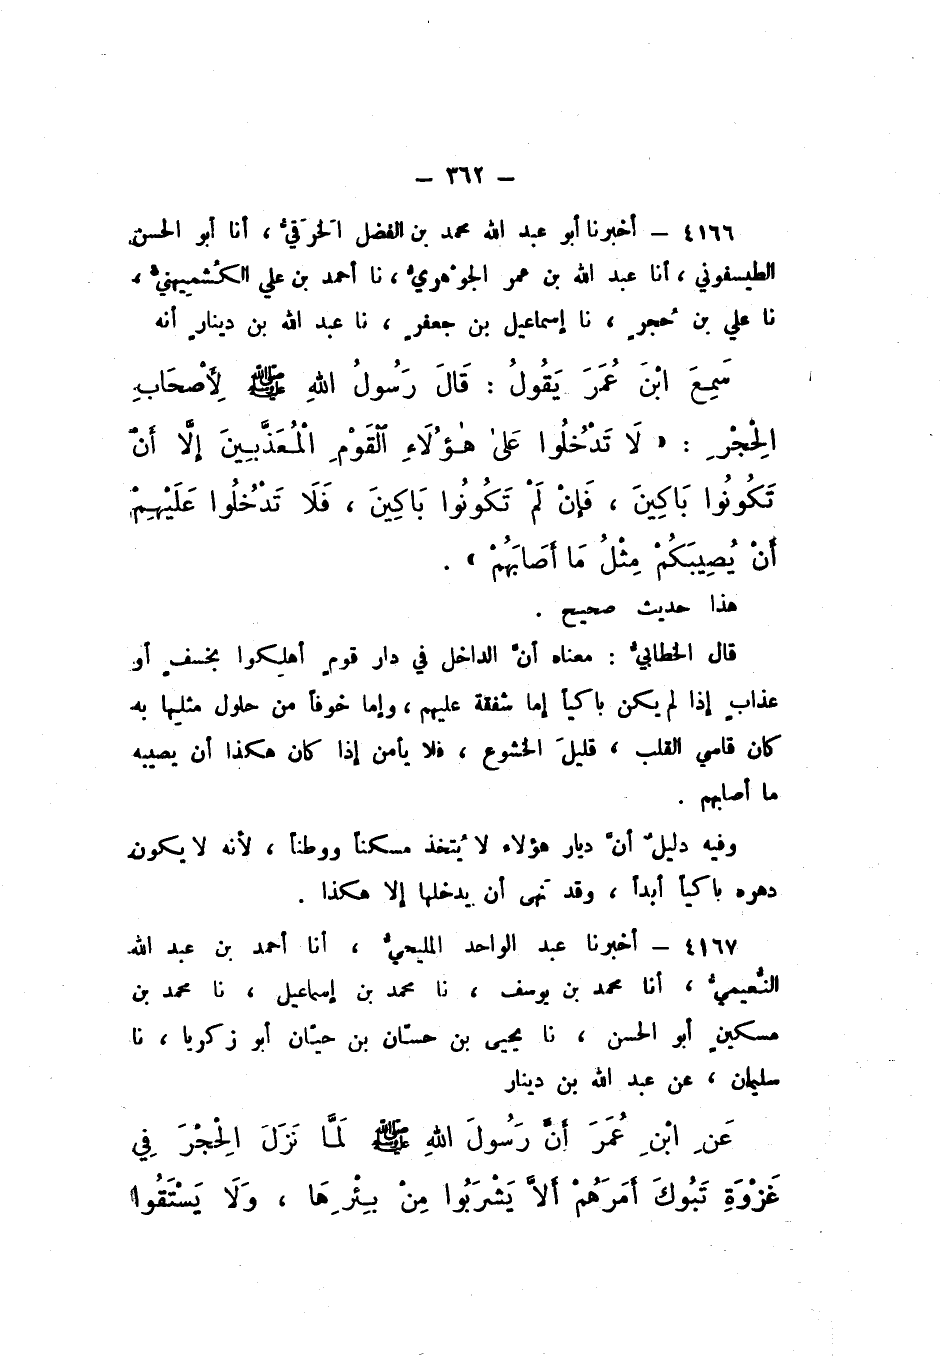 – ٣٦٢ –
٤١٦٦ – أخبرنا أبو عبد الله محمد بن الفضل الخَرَقيُّ ، أنا أبو الحسن
الطيسفوني ، أنا عبد الله بن عمر الجوْهريُّ ، نا أحمد بن علي الكُشميهنيُّ ،
نا علي بن حُجرٍ ، نا إسماعيل بن جعفرٍ ، نا عبد الله بن دينارٍ أنه
سَمِعَ ابْنَ عُمَرَ يَقُولُ : قَالَ رَسُولُ اللهِ ﷺ لِأَصْحَابِ
الْحِجْرِ : « لَا تَدْخُلُوا عَلىٰ هٰؤُلَاءِ الْقَوْمِ الْمُعَذَّبِينَ إِلَّا أَنْ
تَكُونُوا بَاكِينَ ، فَإِنْ لَمْ تَكُونُوا بَاكِينَ ، فَلَا تَدْخُلُوا عَلَيْهِمْ
أَنْ يُصِيبَكُمْ مِثْلُ مَا أَصَابَهُمْ » .
هذا حديث صحيح .
قال الخطابيُّ : معناه أنَّ الداخل في دار قومٍ أهلِكوا بخسفٍ أو
عذابٍ إذا لم يكن باكياً إما شفقة عليهم ، وإما خوفاً من حلول مثلِها به
كان قاسي القلب ، قليلَ الخشوع ، فلا يأمن إذا كان هكذا أن يصيبه
ما أصابهم .
وفيه دليلٌ أنَّ ديار هؤلاء لا يُتخذ مسكناً ووطناً ، لأنه لا يكون
دهره باكياً أبداً ، وقد نَهى أن يدخلها إلا هكذا .
٤١٦٧ – أخبرنا عبد الواحد المليحيُّ ، أنا أحمد بن عبد الله
النُّعيميُّ ، أنا محمد بن يوسف ، نا محمد بن إسماعيل ، نا محمد بن
مسكينٍ أبو الحسن ، نا يحيى بن حسّان بن حيّان أبو زكريا ، نا
سليمان ، عن عبد الله بن دينار
عَنِ ابْنِ عُمَرَ أَنَّ رَسُولَ اللهِ ﷺ لَمَّا نَزَلَ الْحِجْرَ فِي
غَزْوَةِ تَبُوكَ أَمَرَهُمْ أَلاَّ يَشْرَبُوا مِنْ بِئْرِهَا ، وَلَا يَسْتَقُوا